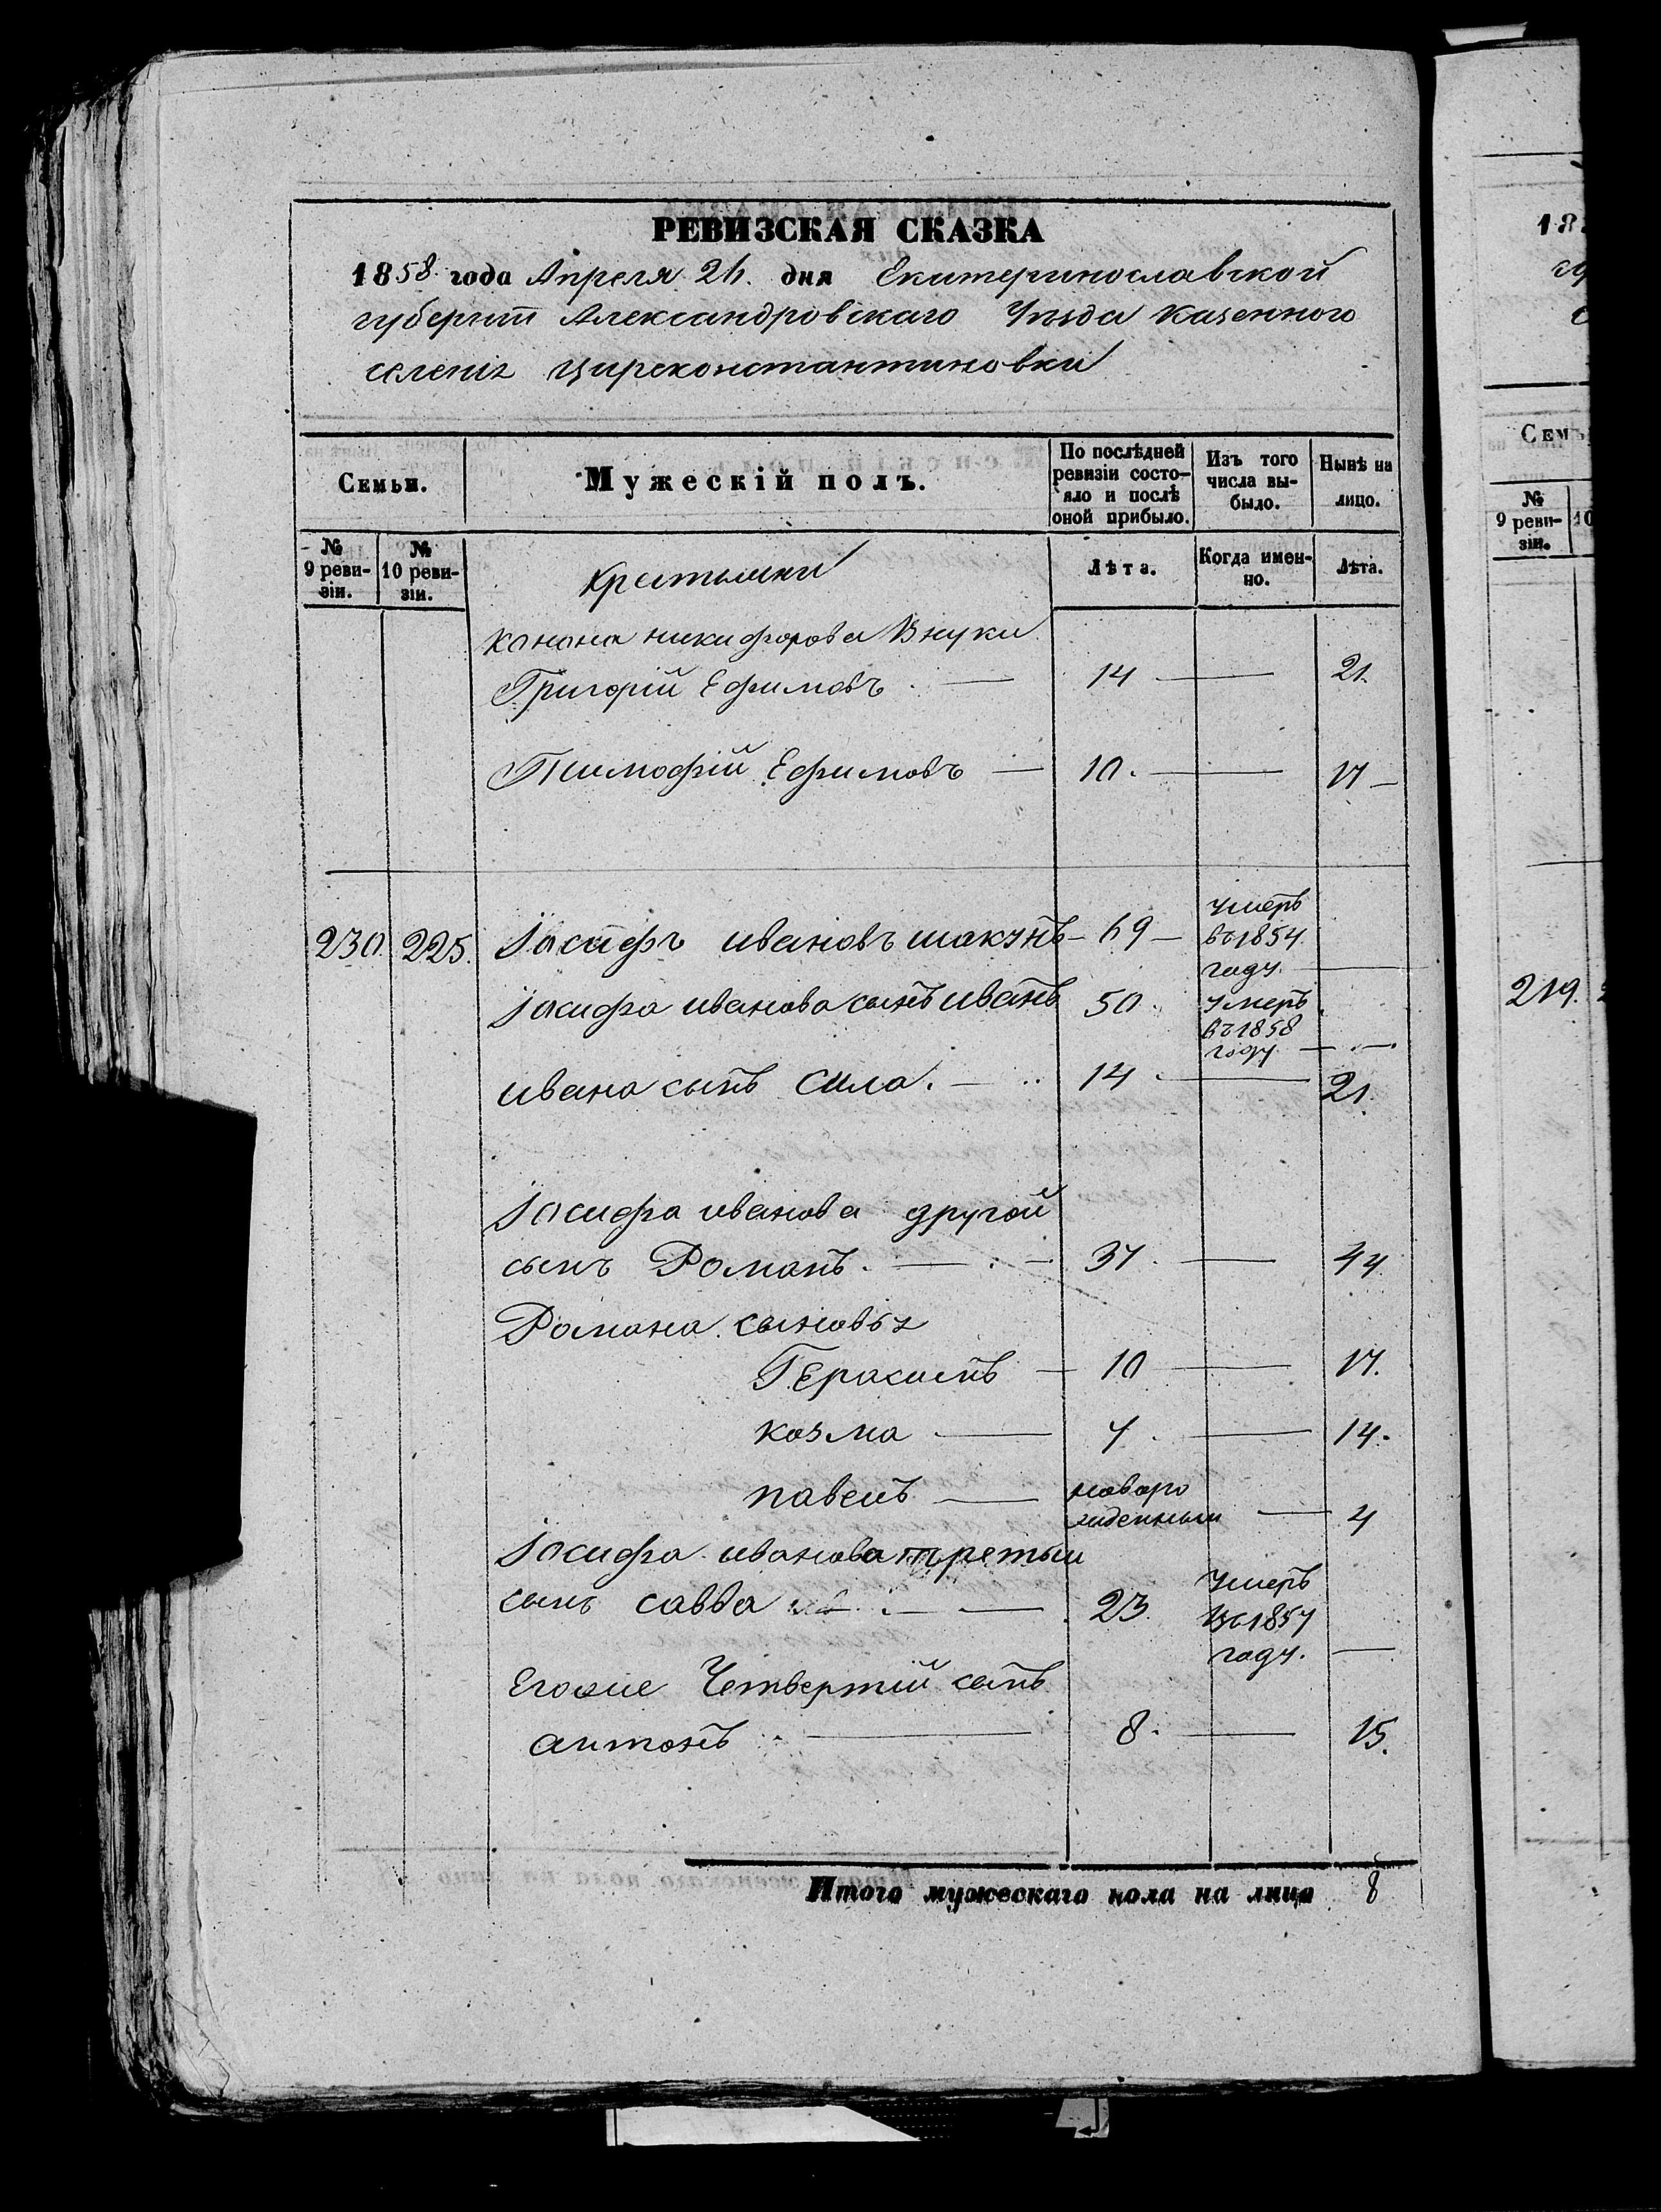 РЕВИЗСКАЯ СКАЗКА
1858 года Апреля 24. дня Екатеринославской
губерніи Александровскаго Уезда Казенного
селенія Цареконстантиновки
Семьи. Мужескій полъ. По послѣдней ревизіи состояло и послѣ оной прибыло. Изъ того числа выбыло. Нынѣ на лицо.
№ 9 ревизіи. № 10 ревизіи. Крестьяни Лѣта. Когда именно. Лѣта.
Конона Никифорова Внуки
Григорій Ефимовъ — 14 — 21.
Тимофій Ефимовъ — 10. — 17 —
230. 225. Іосифъ ивановъ шакунъ — 69 — умеръ въ 1854 году. —
Іосифа иванова сынъ иванъ 50. умеръ въ 1858 году. —
ивана сынъ Сила. — 14 — 21.
Іосифа иванова другой
сынъ Романъ. — 37. — 44.
Романа сыновья
Герасимъ — 10 — 17.
козма — 7. — 14.
павелъ — новорожденныи — 4
Іосифа иванова третыи
сынъ савва — 23. Умеръ въ 1857 году. —
Егоже Четвертій сынъ
антонъ — 8. — 15.
Итого мужескаго пола на лицо 8
18
Семь
№ 9 ревизіи. 10
219.